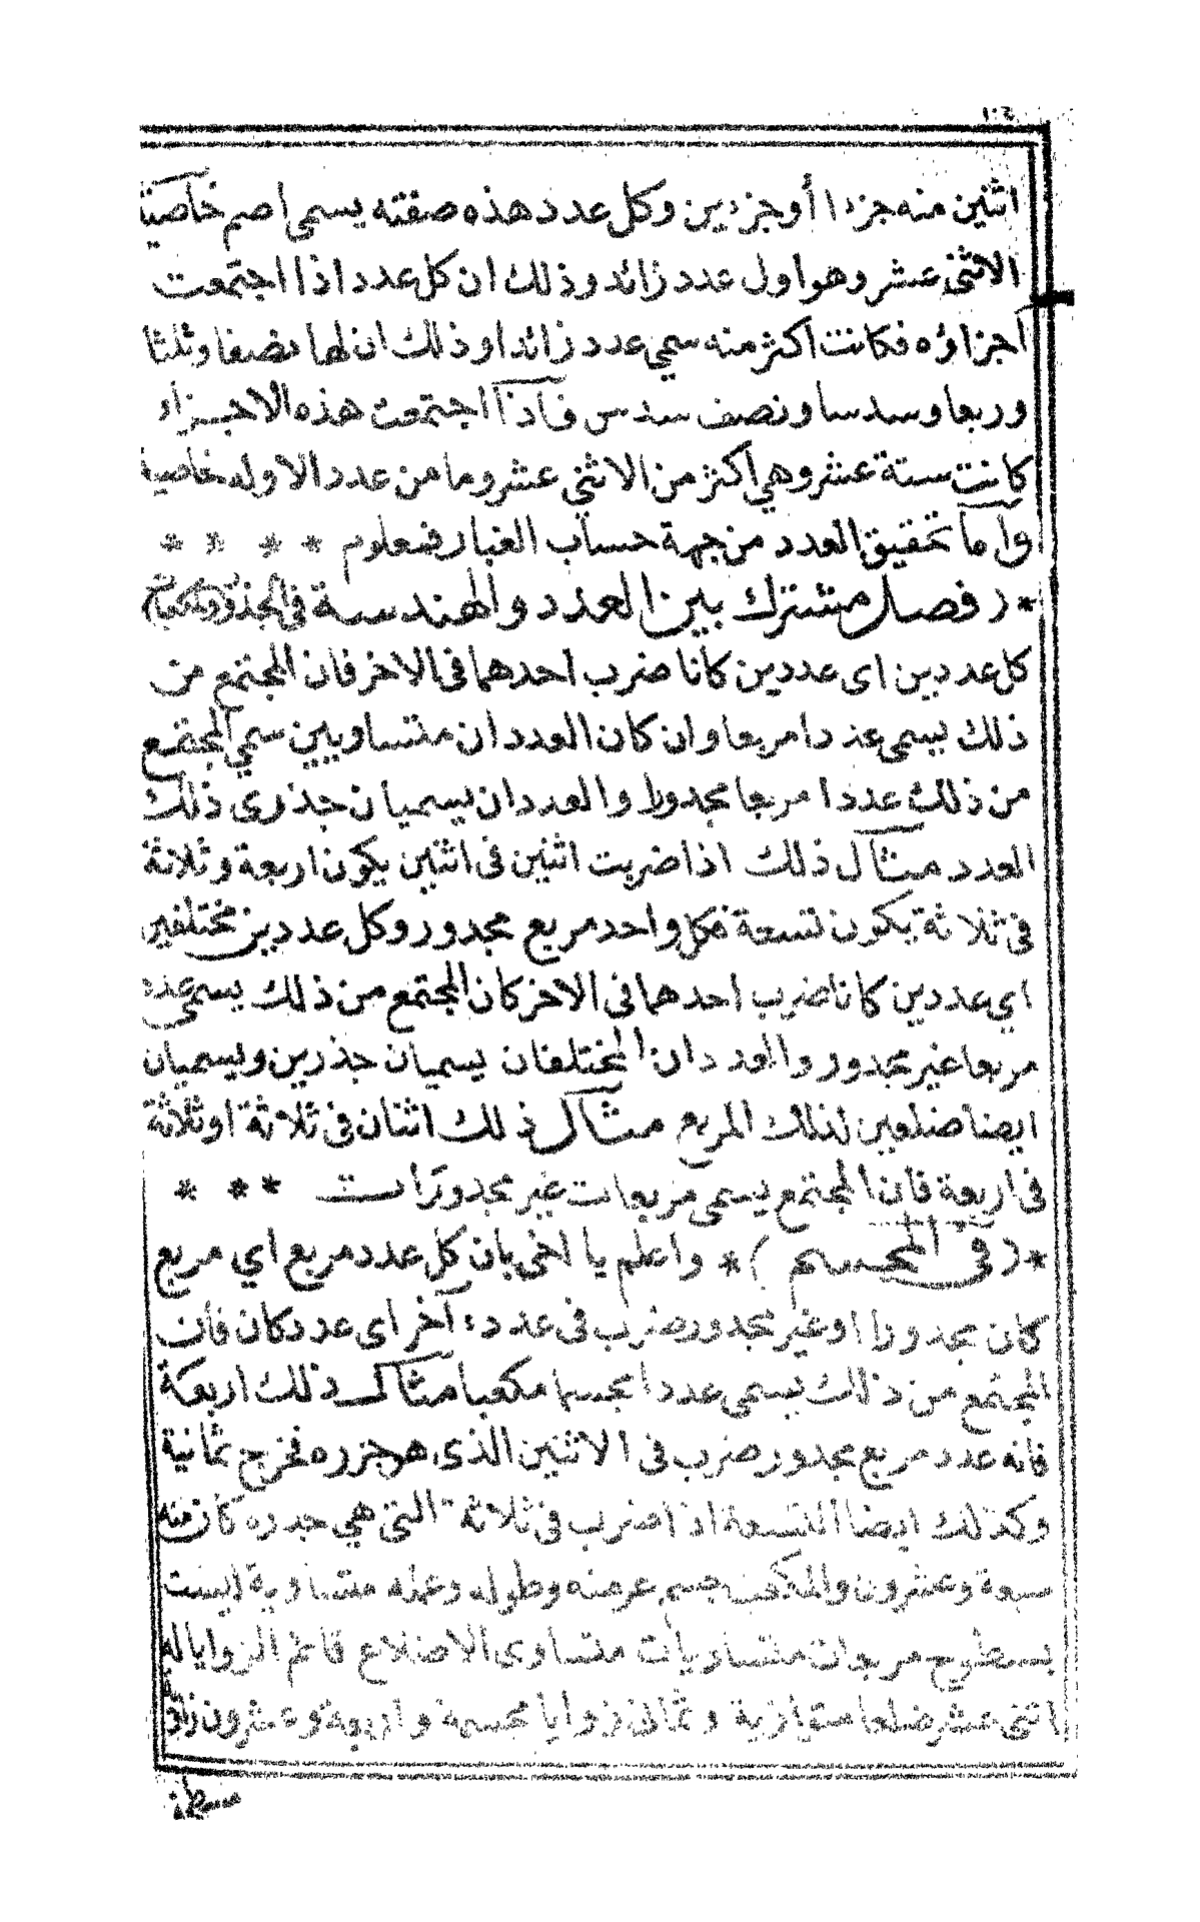 ١٠٤
اثنين منه جزءا أو جزءين وكل عدد هذه صفته يسمى اصم خاصية
الاثنى عشر وهو اول عدد زائد وذلك ان كل عدد اذا اجتمعت
اجزاؤه فكانت اكثر منه سمي عدد زائدا وذلك ان لها نصفا وثلثا
وربعا وسدسا ونصف سدس فاذا اجتمعت هذه الاجزاء
كانت ستة عشر وهي اكثر من الاثني عشر وما من عدد الا وله خاصية
واما تحقيق العدد من جهة حساب الغبار فمعلوم * * * *
* ( فصل مشترك بين العدد والهندسة فى الجذور والمكعبات )
كل عددين اى عددين كانا ضرب احدهما فى الاخر فان المجتمع من
ذلك يسمى عددا مربعا وان كان العددان متساويين سمي المجتمع
من ذلك عددا مربعا مجدورا والعددان يسميان جذرى ذلك
العدد مثال ذلك اذا ضربت اثنين فى اثنين يكون اربعة وثلاثة
فى ثلاثة يكون تسعة فكل واحد مربع مجدور وكل عددين مختلفين
اي عددين كانا ضرب احدهما فى الاخر كان المجتمع من ذلك يسمى عددا
مربعا غير مجدور والعددان المختلفان يسميان جذرين ويسميان
ايضا ضلعين لذلك المربع مثال ذلك اثنان فى ثلاثة او ثلاثة
فى اربعة فان المجتمع يسمى مربعات غير مجدورات * * *
* ( فى المجسم ) * واعلم يا اخى بان كل عدد مربع اي مربع
كان مجدورا او غير مجدور ضرب فى عدد آخر اى عدد كان فان
المجتمع من ذلك يسمى عددا مجسما مكعبا مثال ذلك اربعة
فانه عدد مربع مجدور ضرب فى الاثنين الذى هو جزره فخرج ثمانية
وكذلك ايضا التسعة اذا ضرب فى ثلاثة التى هي جدره كان منه
سبعة وعشرون والمكعب جسم عرضه وطوله وعمقه متساوية ليست
بسطوح مربعات متساويات متساوى الاضلاع قائم الزوايا له
اثنى عشر ضلعا متوازية وثمان زوايا مجسمة واربعة وعشرون زاوية
مسطحة